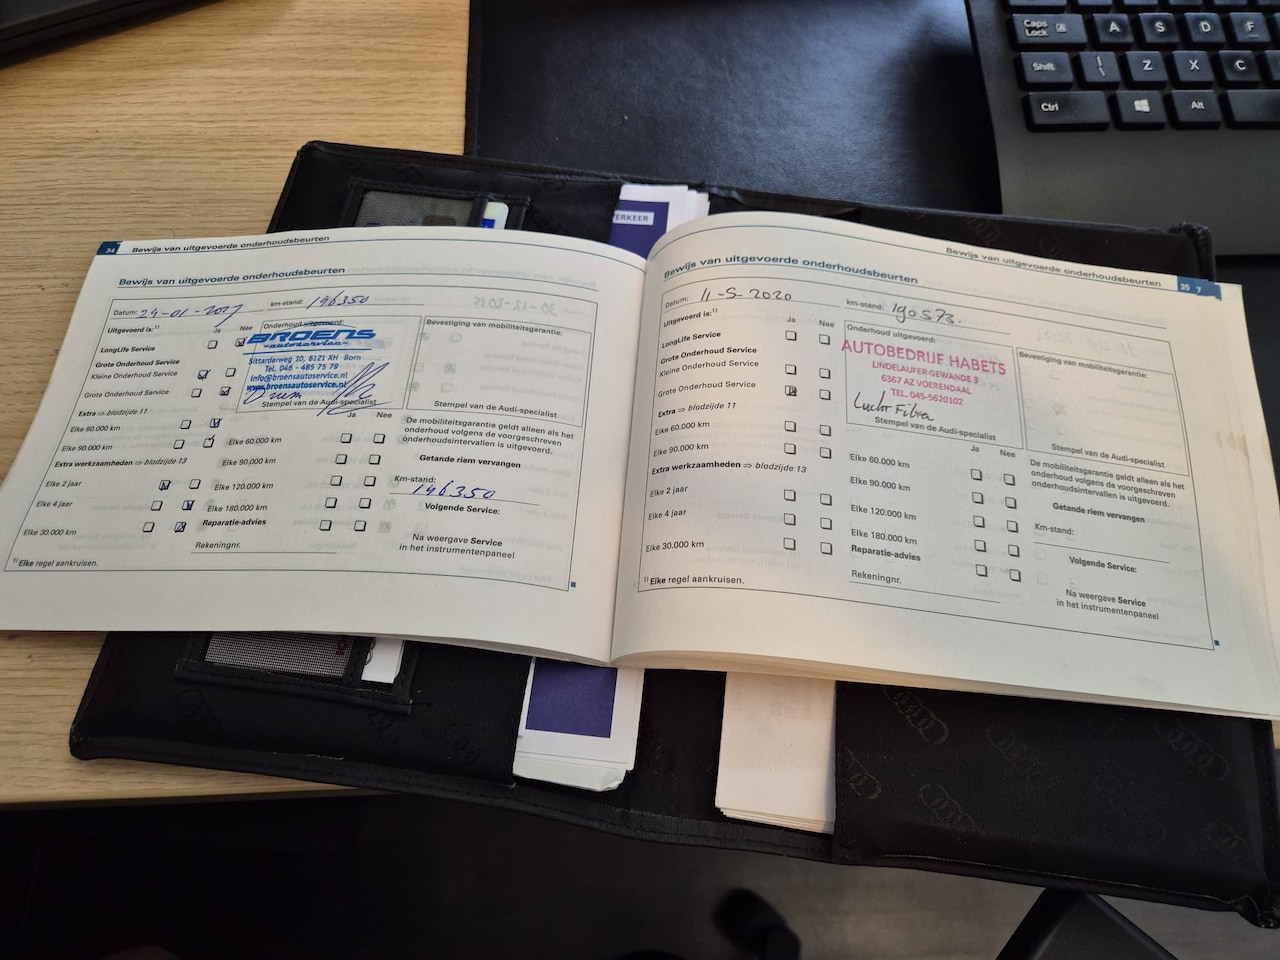 Caps
Lock
A
S
D
F
Shift
\
Z
X
C
Ctrl
Alt
ERKEER
34
Bewijs van uitgevoerde onderhoudsbeurten
Bewijs van uitgevoerde onderhoudsbeurten
Datum:
km-stand: 196350
Uitgevoerd is:¹⁾
Ja
Nee
LongLife Service
Grote Onderhoud Service
Kleine Onderhoud Service
Grote Onderhoud Service
Extra ⇒ bladzijde 11
Elke 60.000 km
Elke 90.000 km
Extra werkzaamheden ⇒ bladzijde 13
Elke 2 jaar
Elke 4 jaar
Elke 30.000 km
¹⁾ Elke regel aankruisen.
Onderhoud uitgevoerd:
BROENS
-autoservice-
Sittarderweg 10, 6121 XH Born
Tel. 046 - 485 75 79
info@broensautoservice.nl
www.broensautoservice.nl
Stempel van de Audi-specialist
Ja
Nee
Elke 60.000 km
Elke 90.000 km
Elke 120.000 km
Elke 180.000 km
Reparatie-advies
Rekeningnr.
Bevestiging van mobiliteitsgarantie:
Stempel van de Audi-specialist
De mobiliteitsgarantie geldt alleen als het
onderhoud volgens de voorgeschreven
onderhoudsintervallen is uitgevoerd.
Getande riem vervangen
Km-stand:
196350
Volgende Service:
Na weergave Service
in het instrumentenpaneel
Bewijs van uitgevoerde onderhoudsbeurten
35
7
Bewijs van uitgevoerde onderhoudsbeurten
Datum: 11-5-2020
km-stand: 190573.
Uitgevoerd is:¹⁾
Ja
Nee
LongLife Service
Grote Onderhoud Service
Kleine Onderhoud Service
Grote Onderhoud Service
Extra ⇒ bladzijde 11
Elke 60.000 km
Elke 90.000 km
Extra werkzaamheden ⇒ bladzijde 13
Elke 2 jaar
Elke 4 jaar
Elke 30.000 km
¹⁾ Elke regel aankruisen.
Onderhoud uitgevoerd:
AUTOBEDRIJF HABETS
LINDELAUFER GEWANDE 3
6367 AZ VOERENDAAL
TEL. 045-5620102
Stempel van de Audi-specialist
Ja
Nee
Elke 60.000 km
Elke 90.000 km
Elke 120.000 km
Elke 180.000 km
Reparatie-advies
Rekeningnr.
Bevestiging van mobiliteitsgarantie:
Stempel van de Audi-specialist
De mobiliteitsgarantie geldt alleen als het
onderhoud volgens de voorgeschreven
onderhoudsintervallen is uitgevoerd.
Getande riem vervangen
Km-stand:
Volgende Service:
Na weergave Service
in het instrumentenpaneel